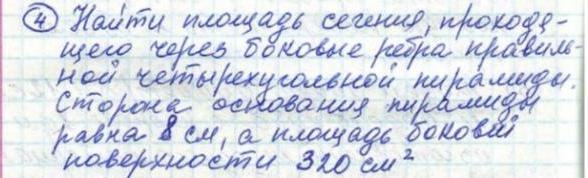 4 Найти площадь сечения, проходя-
щего через боковые ребра правиль-
ной четырехугольной пирамиды.
Сторона основания пирамиды
равна 8 см, а площадь боковой
поверхности 320 см²